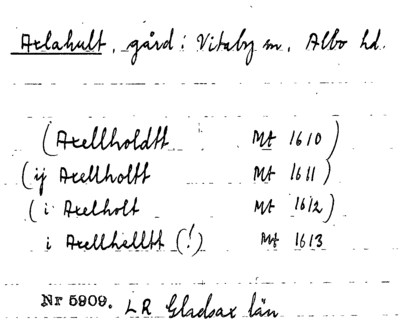 Axlahult, gård i Vitaby sn, Albo hd.
(Axellholdtt Mt 1610)
(ij Axellholtt Mt 1611)
(i Axelholt Mt 1612)
i Axellhalltt (!) Mt 1613
Nr 5909. LR Gladsax län